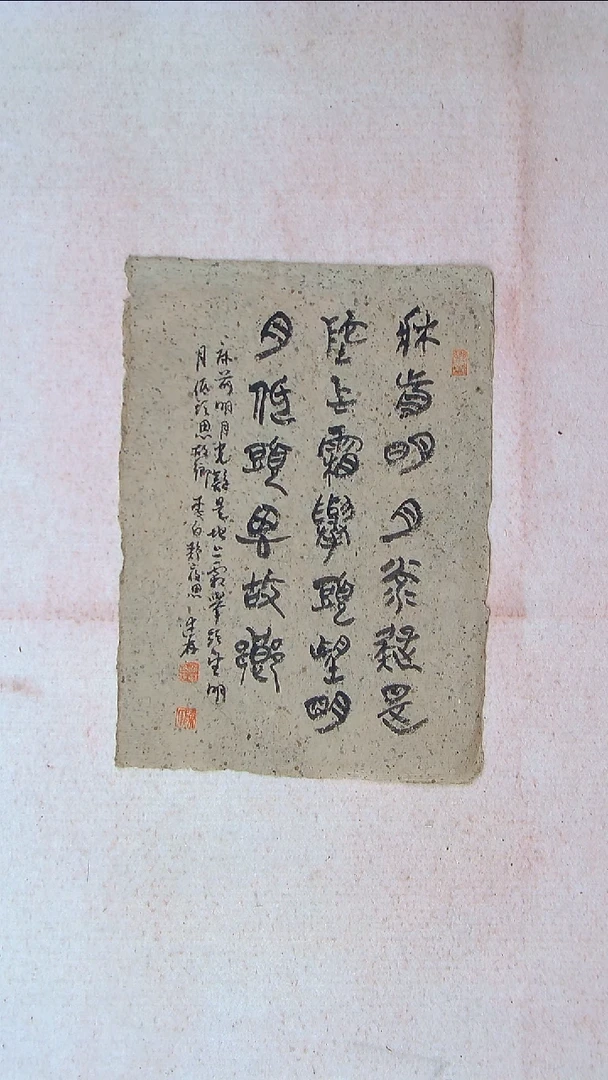 牀前明月光疑是
地上霜舉頭望明
月低頭思故鄉
床前明月光疑是地上霜舉頭望明
月低頭思故鄉 李白靜夜思